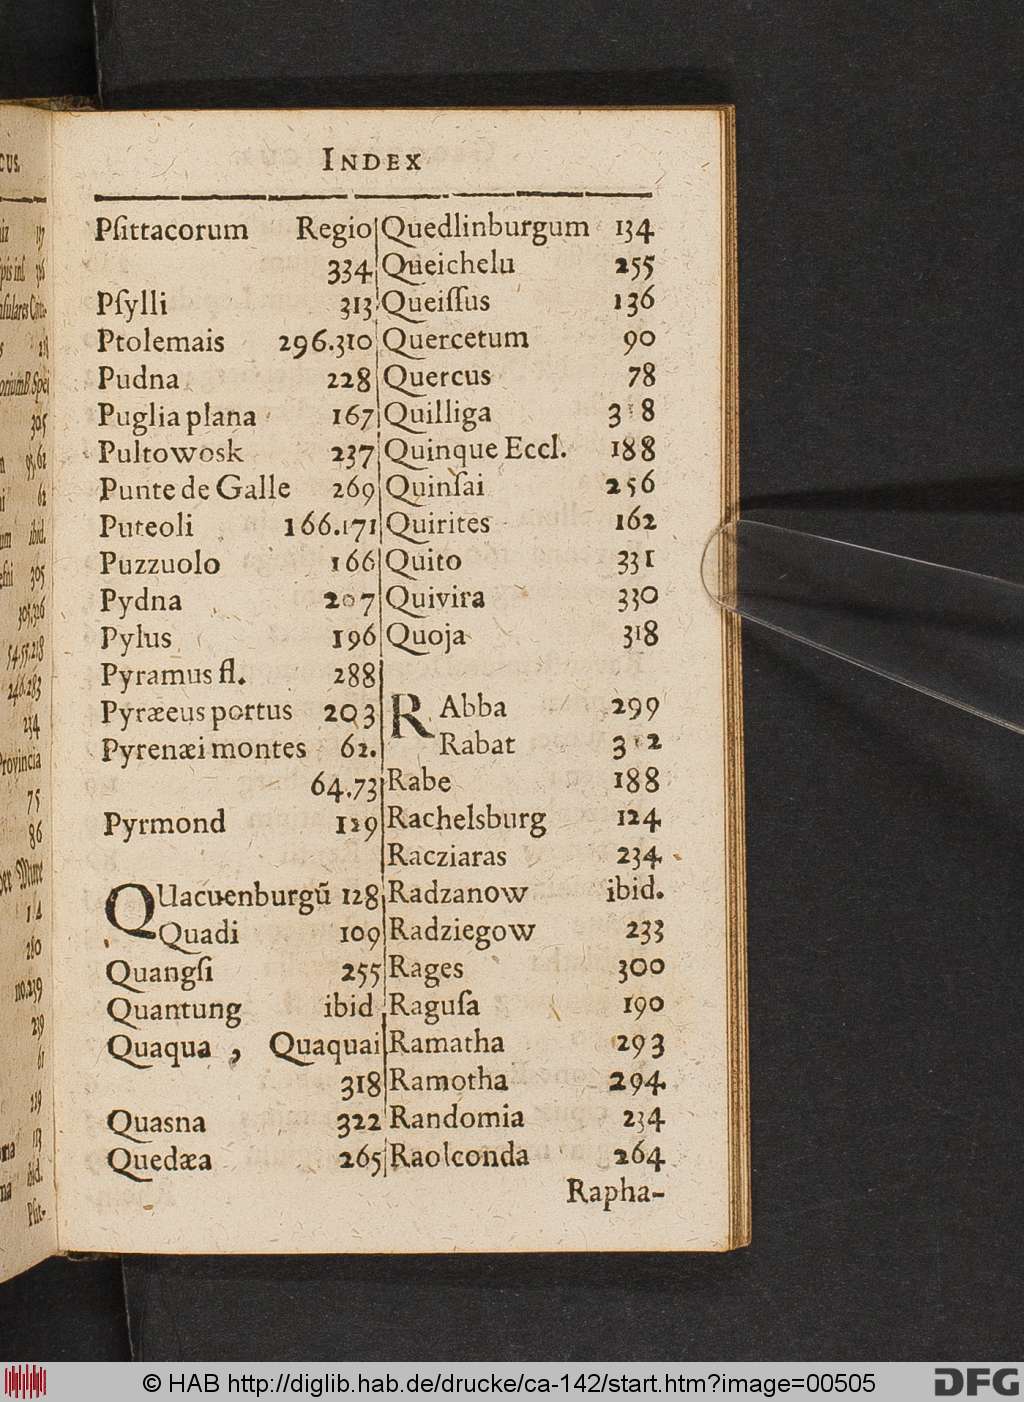 INDEX
Pſittacorum Regio
334
Pſylli 313
Ptolemais 296.310
Pudna 228
Puglia plana 167
Pultowosk 237
Punte de Galle 269
Puteoli 166.171
Puzzuolo 166
Pydna 207
Pylus 196
Pyramus fl. 288
Pyræeus portus 203
Pyrenæi montes 62.
64.73
Pyrmond 129
QUacuenburgū 128
Quadi 109
Quangſi 255
Quantung ibid
Quaqua , Quaquai
318
Quasna 322
Quedæa 265
Quedlinburgum 134
Queichelu 255
Queiſſus 136
Quercetum 90
Quercus 78
Quilliga
Quinque Eccl. 188
Quinſai 256
Quirites 162
Quito 331
Quivira 330
Quoja 318
RAbba 299
Rabat
Rabe 188
Rachelsburg 124
Racziaras 234
Radzanow ibid.
Radziegow 233
Rages 300
Raguſa 190
Ramatha 293
Ramotha 294
Randomia 234
Raolconda 264
Rapha-
© HAB http://diglib.hab.de/drucke/ca-142/start.htm?image=00505
DFG